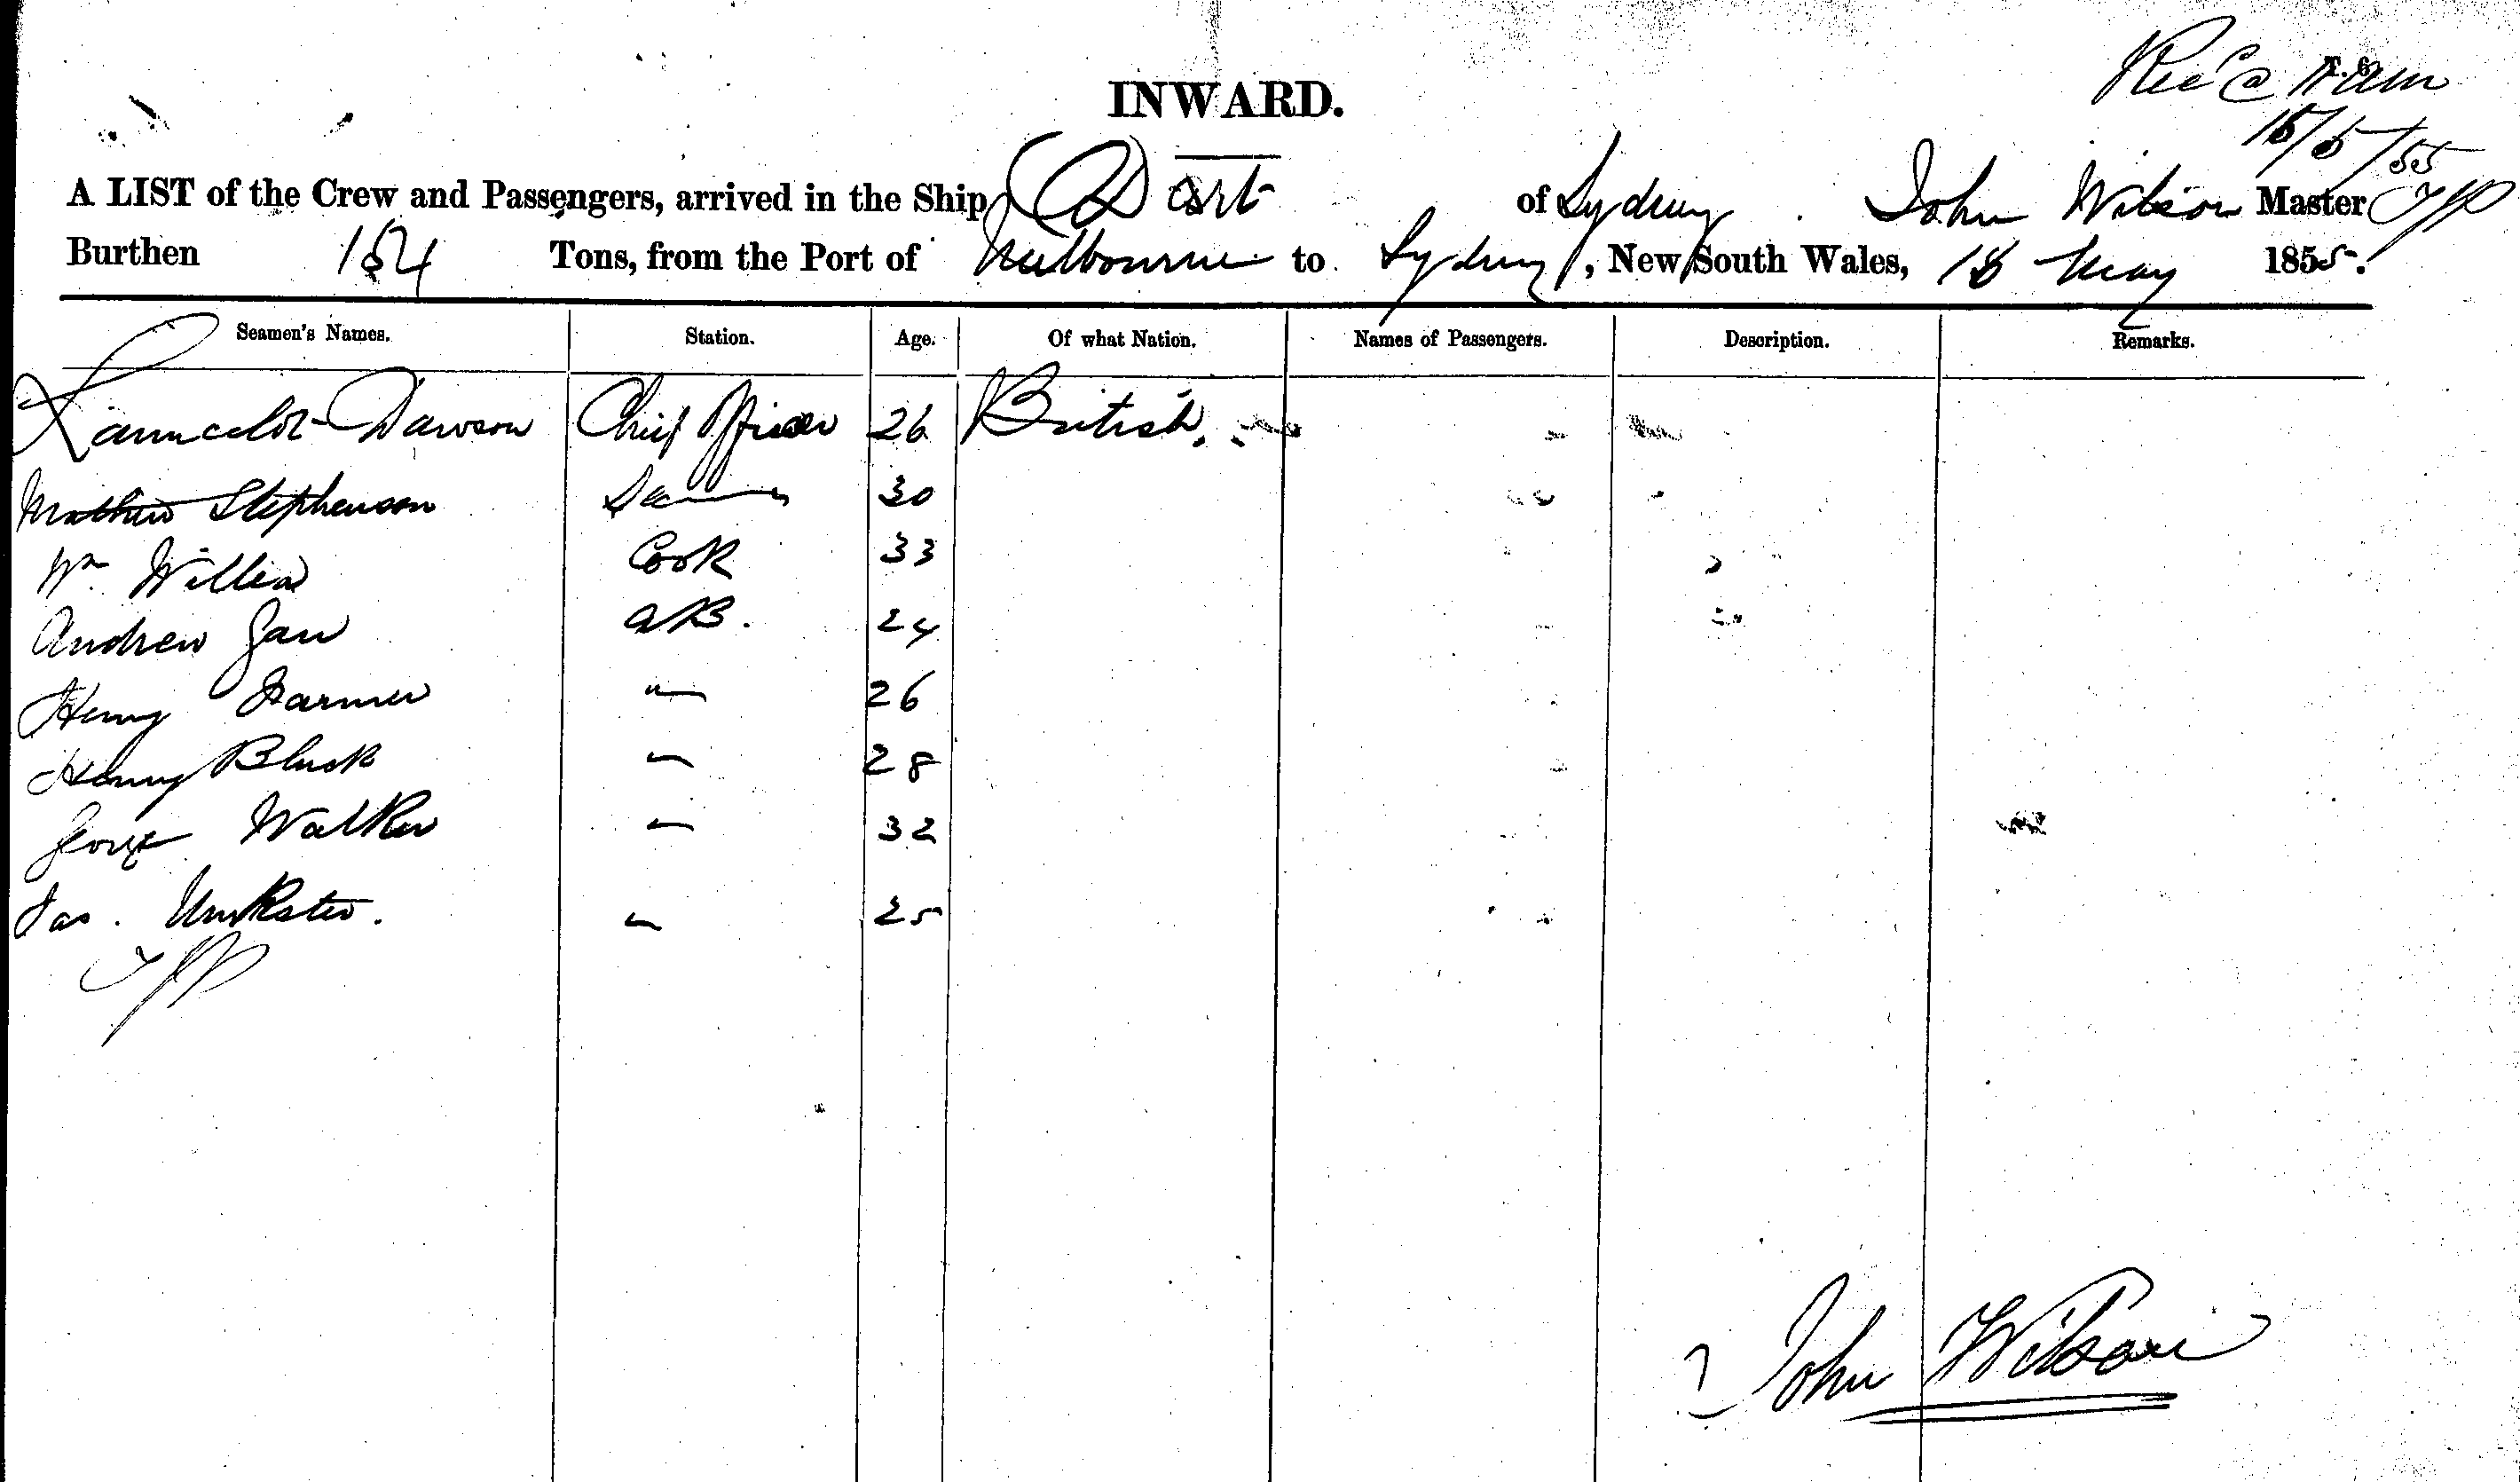 INWARD.
Rec'd
15/5/55
A LIST of the Crew and Passengers, arrived in the Ship Dart of Sydney John Wilson Master
Burthen 154 Tons, from the Port of Melbourne to Sydney, New South Wales, 18 May 1855.
Seamen's Names. Station. Age. Of what Nation. Names of Passengers. Description. Remarks.
Launcelot Dawson Chief Officer 26 British.
Mathew Stephenson 30
Wm Cook 33
Andrew AB. 24
Henry Farmer " 26
Henry Black " 28
George Walker " 32
Jas. " 25
John Wilson